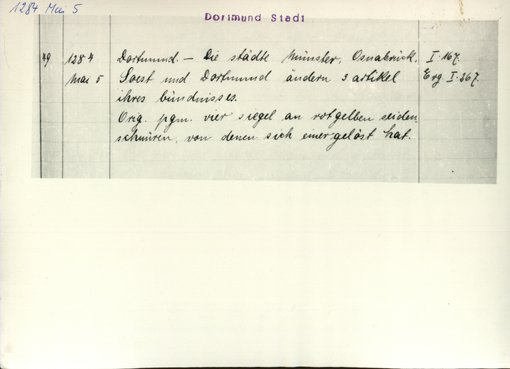 1284 Mai 5
Dortmund Stadt
49 1284 Dortmund. – Die städte Münster, Osnabrück, I. 167.
Mai 5 Soest und Dortmund ändern 3 artikel Erg I. 367.
ihres bündnisses.
Orig. pgm. vier siegel an rotgelben seiden
schnüren, von denen sich einer gelöst hat.